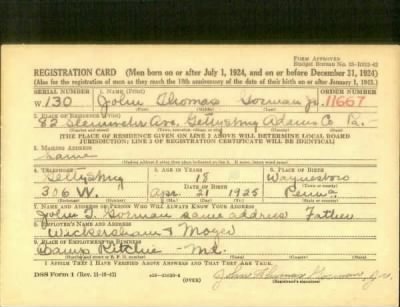 FORM APPROVED
REGISTRATION CARD (Men born on or after July 1, 1924, and on or before December 31, 1924)
(Also for the registration of men as they reach the 18th anniversary of the date of their birth on or after January 1, 1925.)
SERIAL NUMBER 1. NAME (Print) ORDER NUMBER
W 130 John Thomas Gorman Jr. 11667
(First) (Middle) (Last)
2. PLACE OF RESIDENCE (Print)
Ave. Gettysburg Adams Co Pa.
(THE PLACE OF RESIDENCE GIVEN ON LINE 2 ABOVE WILL DETERMINE LOCAL BOARD
JURISDICTION; LINE 2 OF REGISTRATION CERTIFICATE WILL BE IDENTICAL)
3. MAILING ADDRESS
same
4. TELEPHONE 5. AGE IN YEARS 6. PLACE OF BIRTH
Gettysburg 18 Waynesboro
DATE OF BIRTH
376 W. Apr. 21 1925 Penn.
7. NAME AND ADDRESS OF PERSON WHO WILL ALWAYS KNOW YOUR ADDRESS
John T. Gorman same address Father
8. EMPLOYER'S NAME AND ADDRESS
Wickersham & Moyer
9. PLACE OF EMPLOYMENT OR BUSINESS
Camp Ritchie - Md.
I AFFIRM THAT I HAVE VERIFIED ABOVE ANSWERS AND THAT THEY ARE TRUE.
DSS Form 1 (OVER) John Thomas Gorman, Jr.